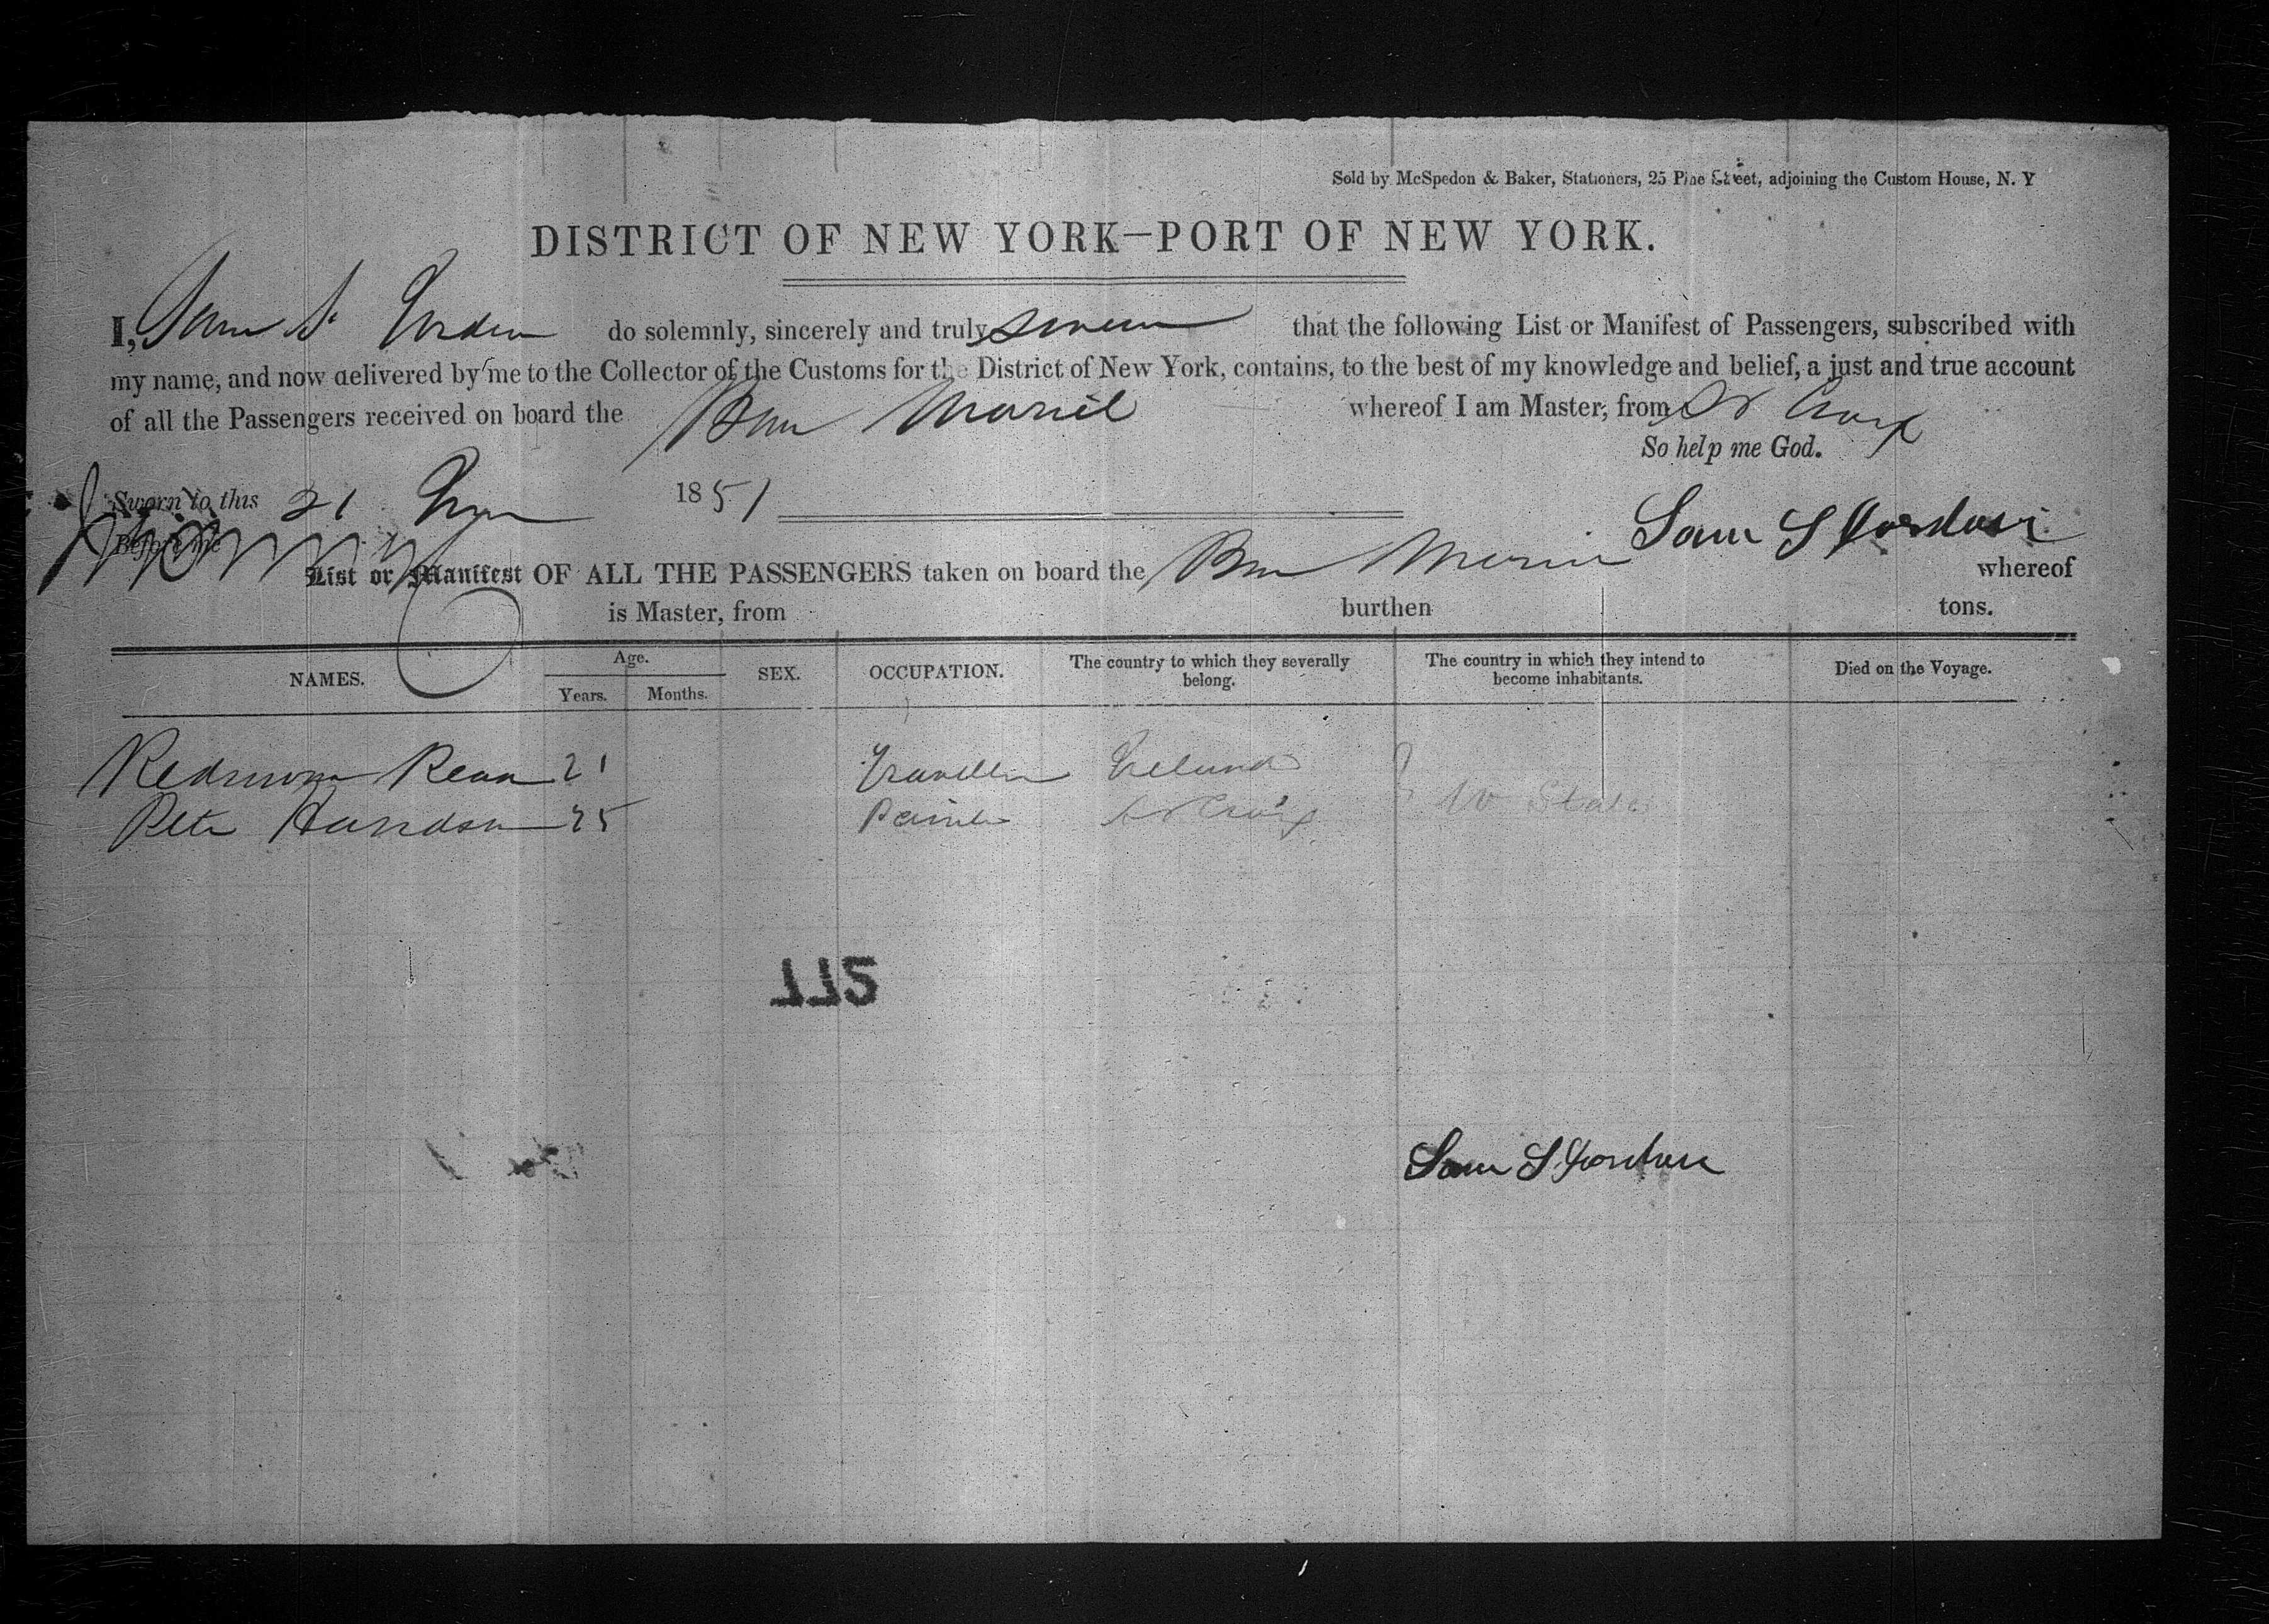 Sold by McSpedon & Baker, Stationers, 25 Pine Street, adjoining the Custom House, N. Y
DISTRICT OF NEW YORK—PORT OF NEW YORK.
I, Sam S. Gordon do solemnly, sincerely and truly swear that the following List or Manifest of Passengers, subscribed with
my name, and now delivered by me to the Collector of the Customs for the District of New York, contains, to the best of my knowledge and belief, a just and true account
of all the Passengers received on board the whereof I am Master, from St Croix
So help me God.
Sworn to this 21 1851
Before me
Sam S Gordon
List or Manifest OF ALL THE PASSENGERS taken on board the whereof
is Master, from burthen tons.
NAMES. Age. Years. Months. SEX. OCCUPATION. The country to which they severally belong. The country in which they intend to become inhabitants. Died on the Voyage.
21 Traveller Ireland
Peter 25 St Croix U States
115
Sam S Gordon